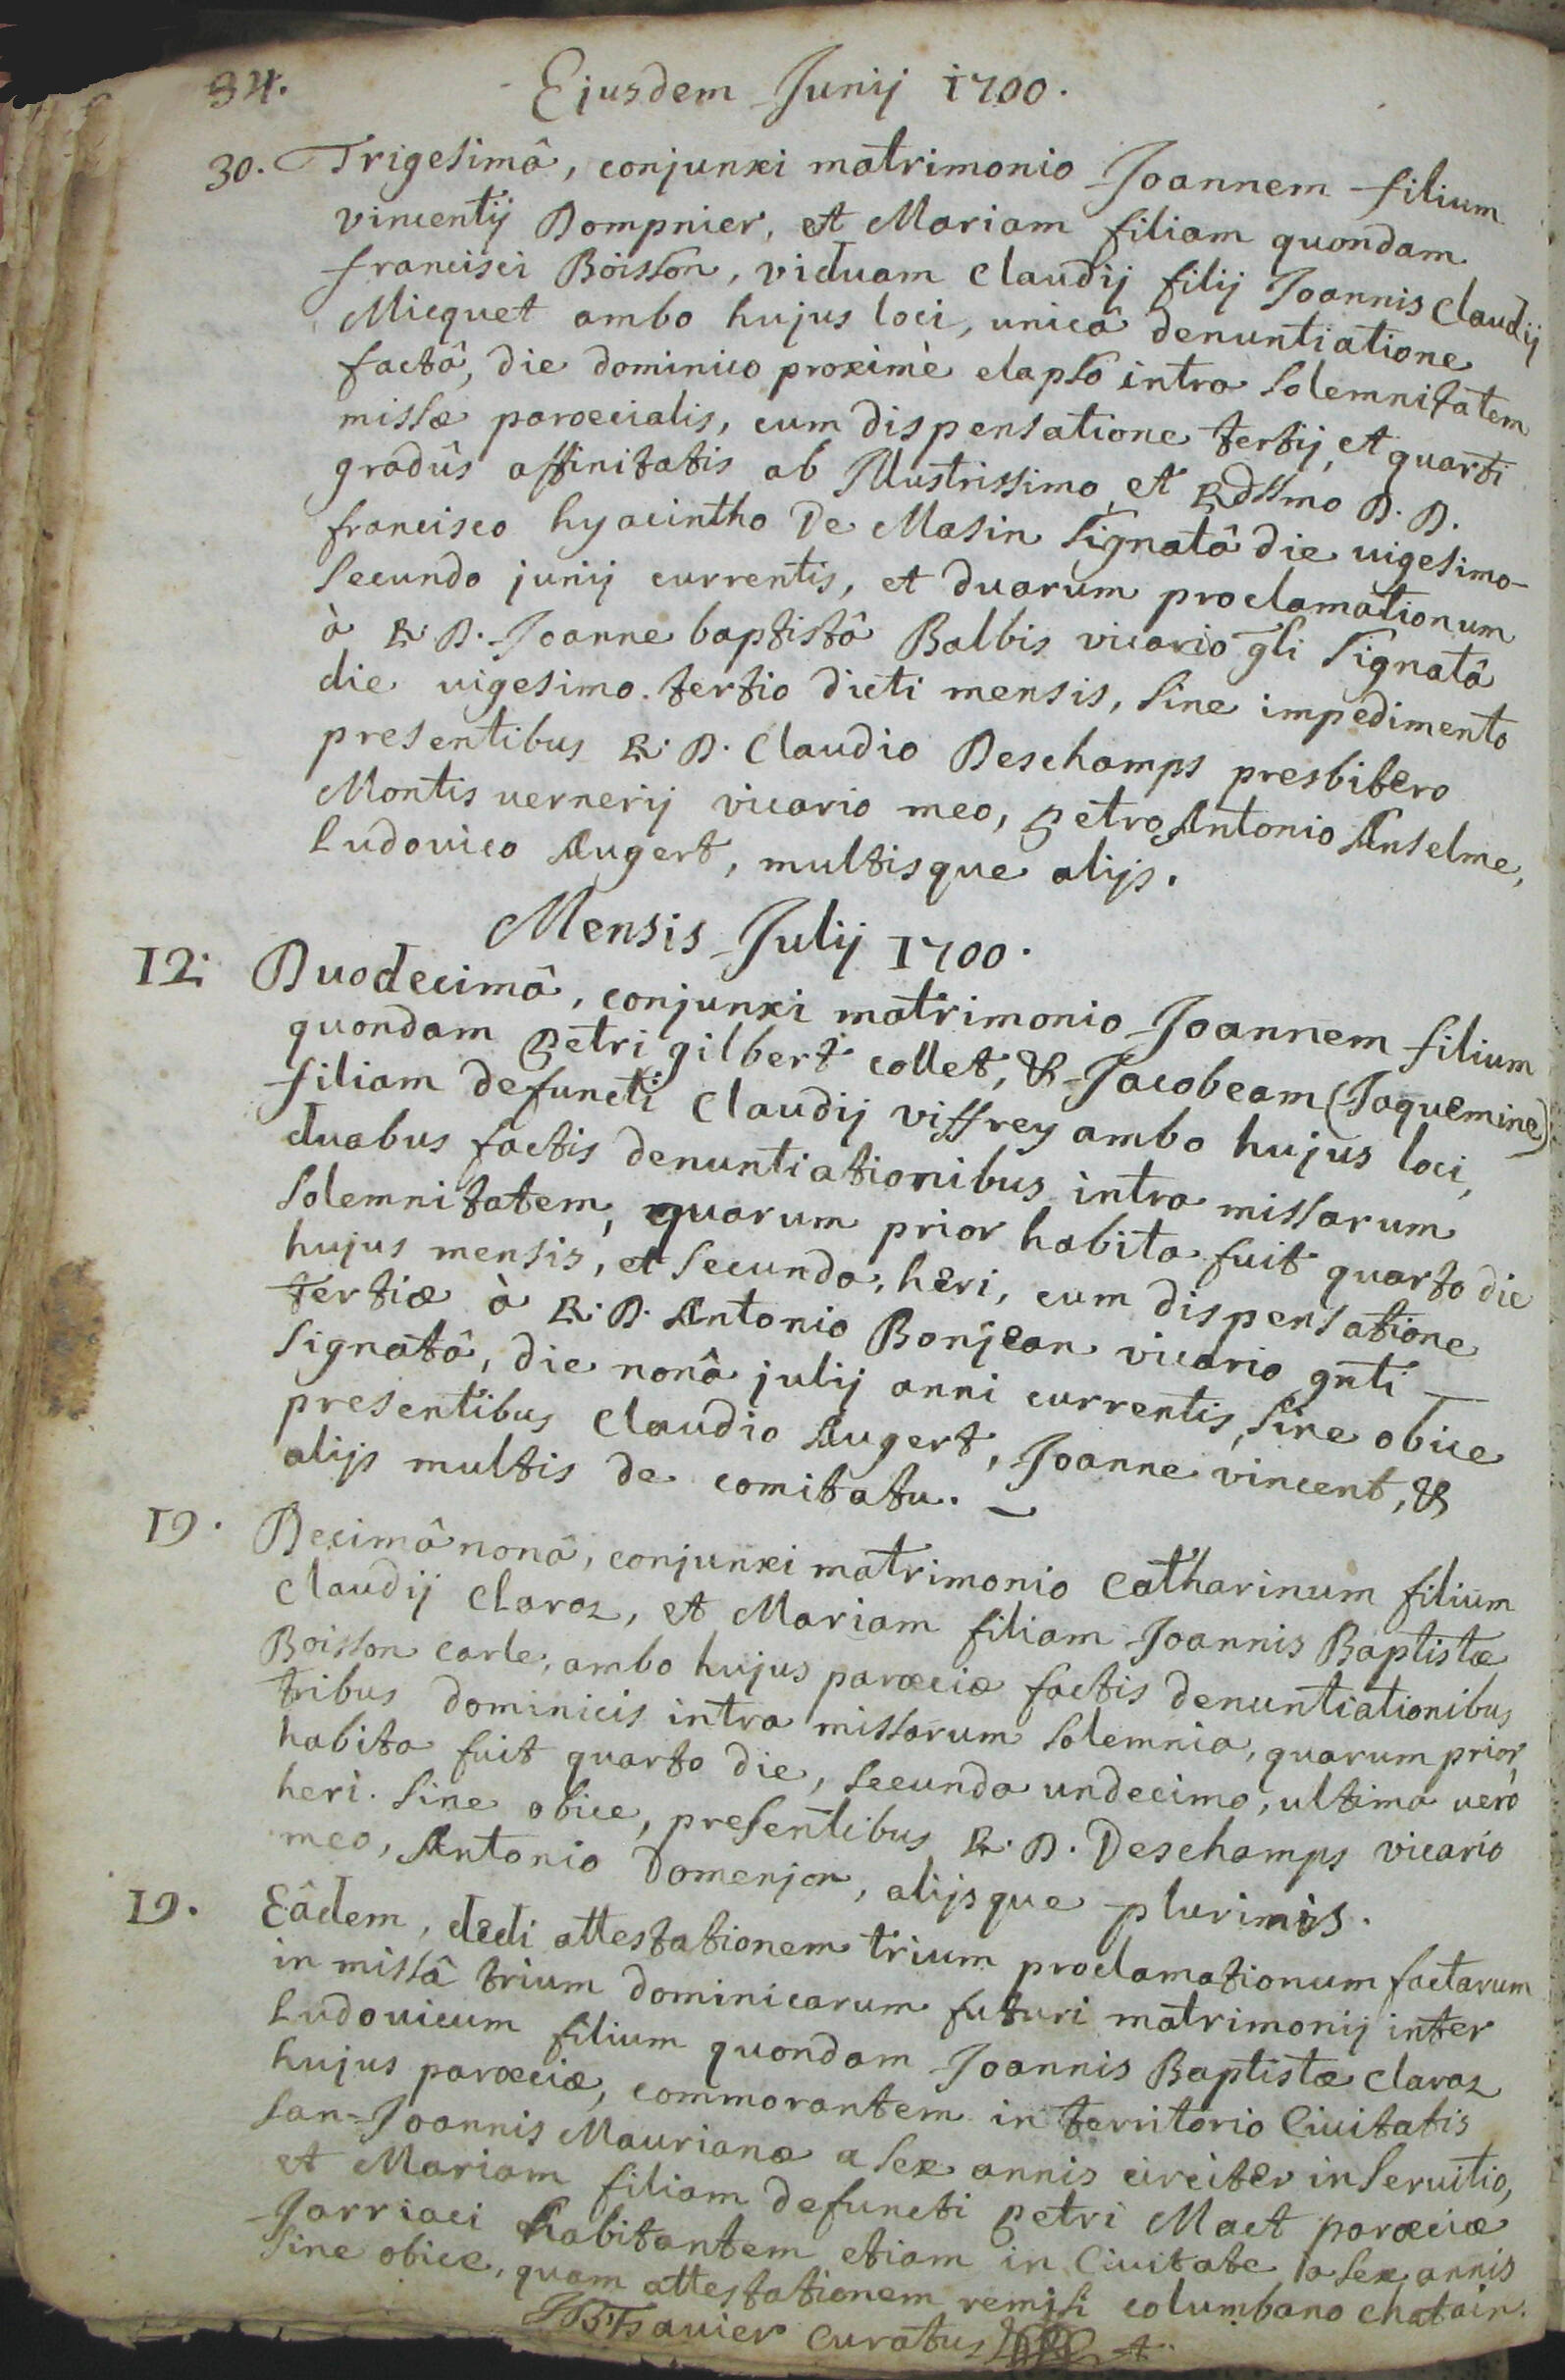 84. Ejusdem Junij 1700.
30. Trigesimâ, conjunxi matrimonio Joannem filium
vincentij Dompnier, et Mariam filiam quondam
francisci Boisson, viduam Claudij filij Joannis Claudij
Micquet ambo hujus loci, unicâ denuntiatione
factâ, die dominico proximè elapso intra solemnitatem
missæ paroecialis, cum dispensatione tertij et quarti
gradûs affinitatis ab Illustrissimo et Rdssmo D. D.
francisco hyacintho De Masin signatâ die uigesimo-
secundo junij currentis, et duarum proclamationum
à R. D. Joanne baptistâ Balbis vicario gli signatâ
die uigesimo. tertio dicti mensis, sine impedimento
presentibus R. D. Claudio Deschamps presbitero
Montis uernerij vicario meo, petro Antonio Anselme,
Ludouico Augert, multisque alijs.
Mensis Julij 1700.
12. Duodecimâ, conjunxi matrimonio Joannem filium
quondam petri gilbert collet, & Jacobeam (Jaquemine)
filiam defuncti Claudij viffrey ambo hujus loci,
duabus factis denuntiationibus intra missarum
solemnitatem, quarum prior habita fuit quarto die
hujus mensis, et secunda, heri, cum dispensatione
tertiæ à R. D. Antonio Bonjean vicario gnti
signatâ, die nonâ julij anni currentis, sine obice
presentibus Claudio Augert, Joanne vincent, &
alijs multis de comitatu.
19. Decimâ nonâ, conjunxi matrimonio Catharinum filium
Claudij Claraz, et Mariam filiam Joannis Baptistæ
Boisson Carle, ambo hujus paroeciæ factis denuntiationibus
tribus dominicis intra missarum solemnia, quarum prior,
habita fuit quarto die, secunda undecimo, ultima uerò
heri. sine obice, presentibus R. D. Deschamps vicario
meo, Antonio Domenjon, alijsque plurimis.
19. Eâdem, dedi attestationem trium proclamationum factarum
in missâ trium dominicarum futuri matrimonij inter
Ludouicum filium quondam Joannis Baptistæ Claraz
hujus paroeciæ, commorantem in territorio Ciuitatis
san-Joannis Maurianæ a sex annis circiter in seruitio,
et Mariam filiam defuncti petri Maet paroeciæ
Jarriaci habitantem etiam in Ciuitate a sex annis
sine obice, quam attestationem remisi columbano chatain.
curatus